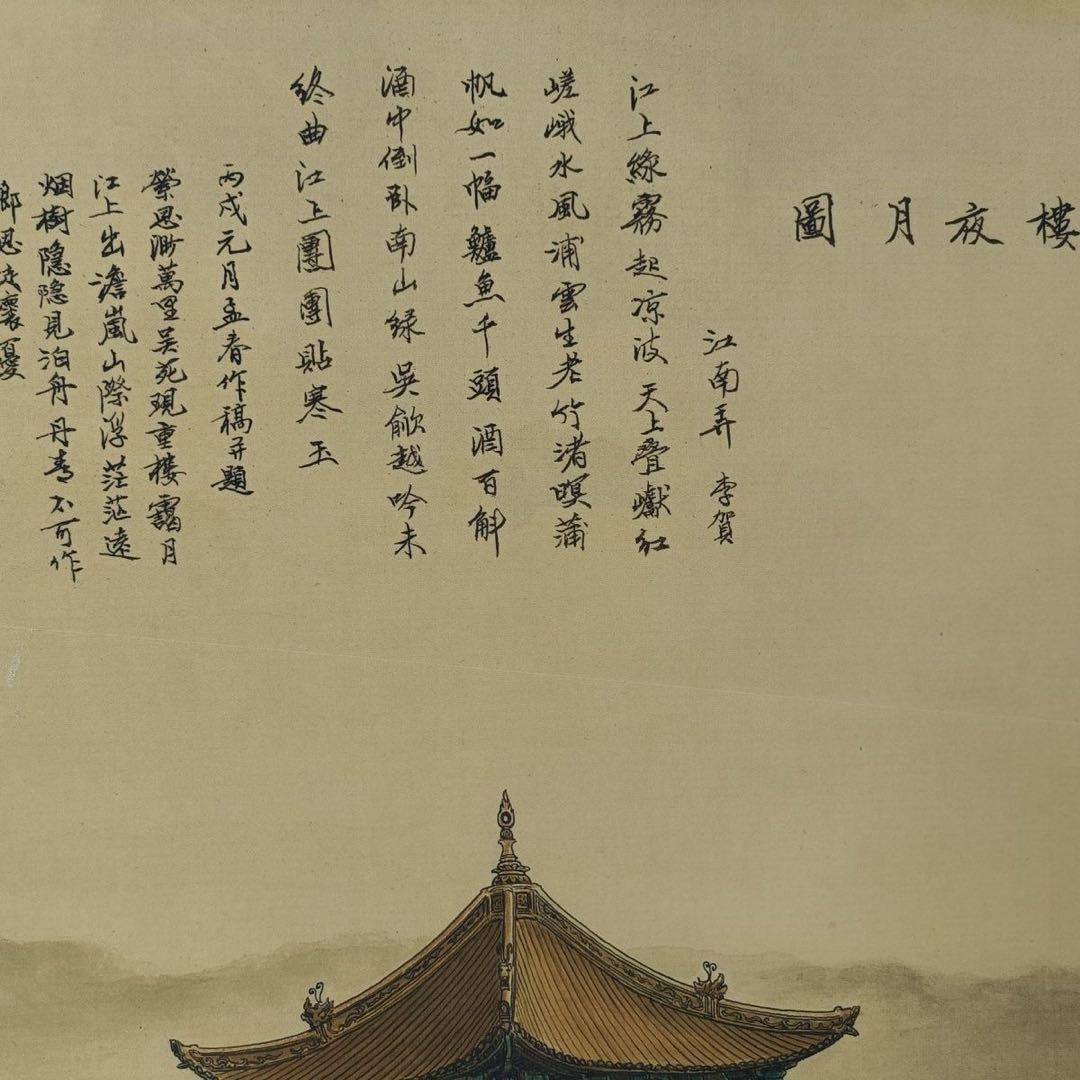 樓夜月圖
江南弄 李賀
江上綠霧起凉波天上疊巘紅
嵯峨水風浦雲生老竹渚暝蒲
帆如一幅鱸魚千頭酒百斛
酒中倒卧南山綠吳歈越吟未
終曲江上團團貼寒玉
丙戌元月孟春作稿并題
縈思渺萬里吴苑現重樓靄月
江上出澹嵐山際浮茫茫遠
烟樹隱隱見泊舟丹青不可作